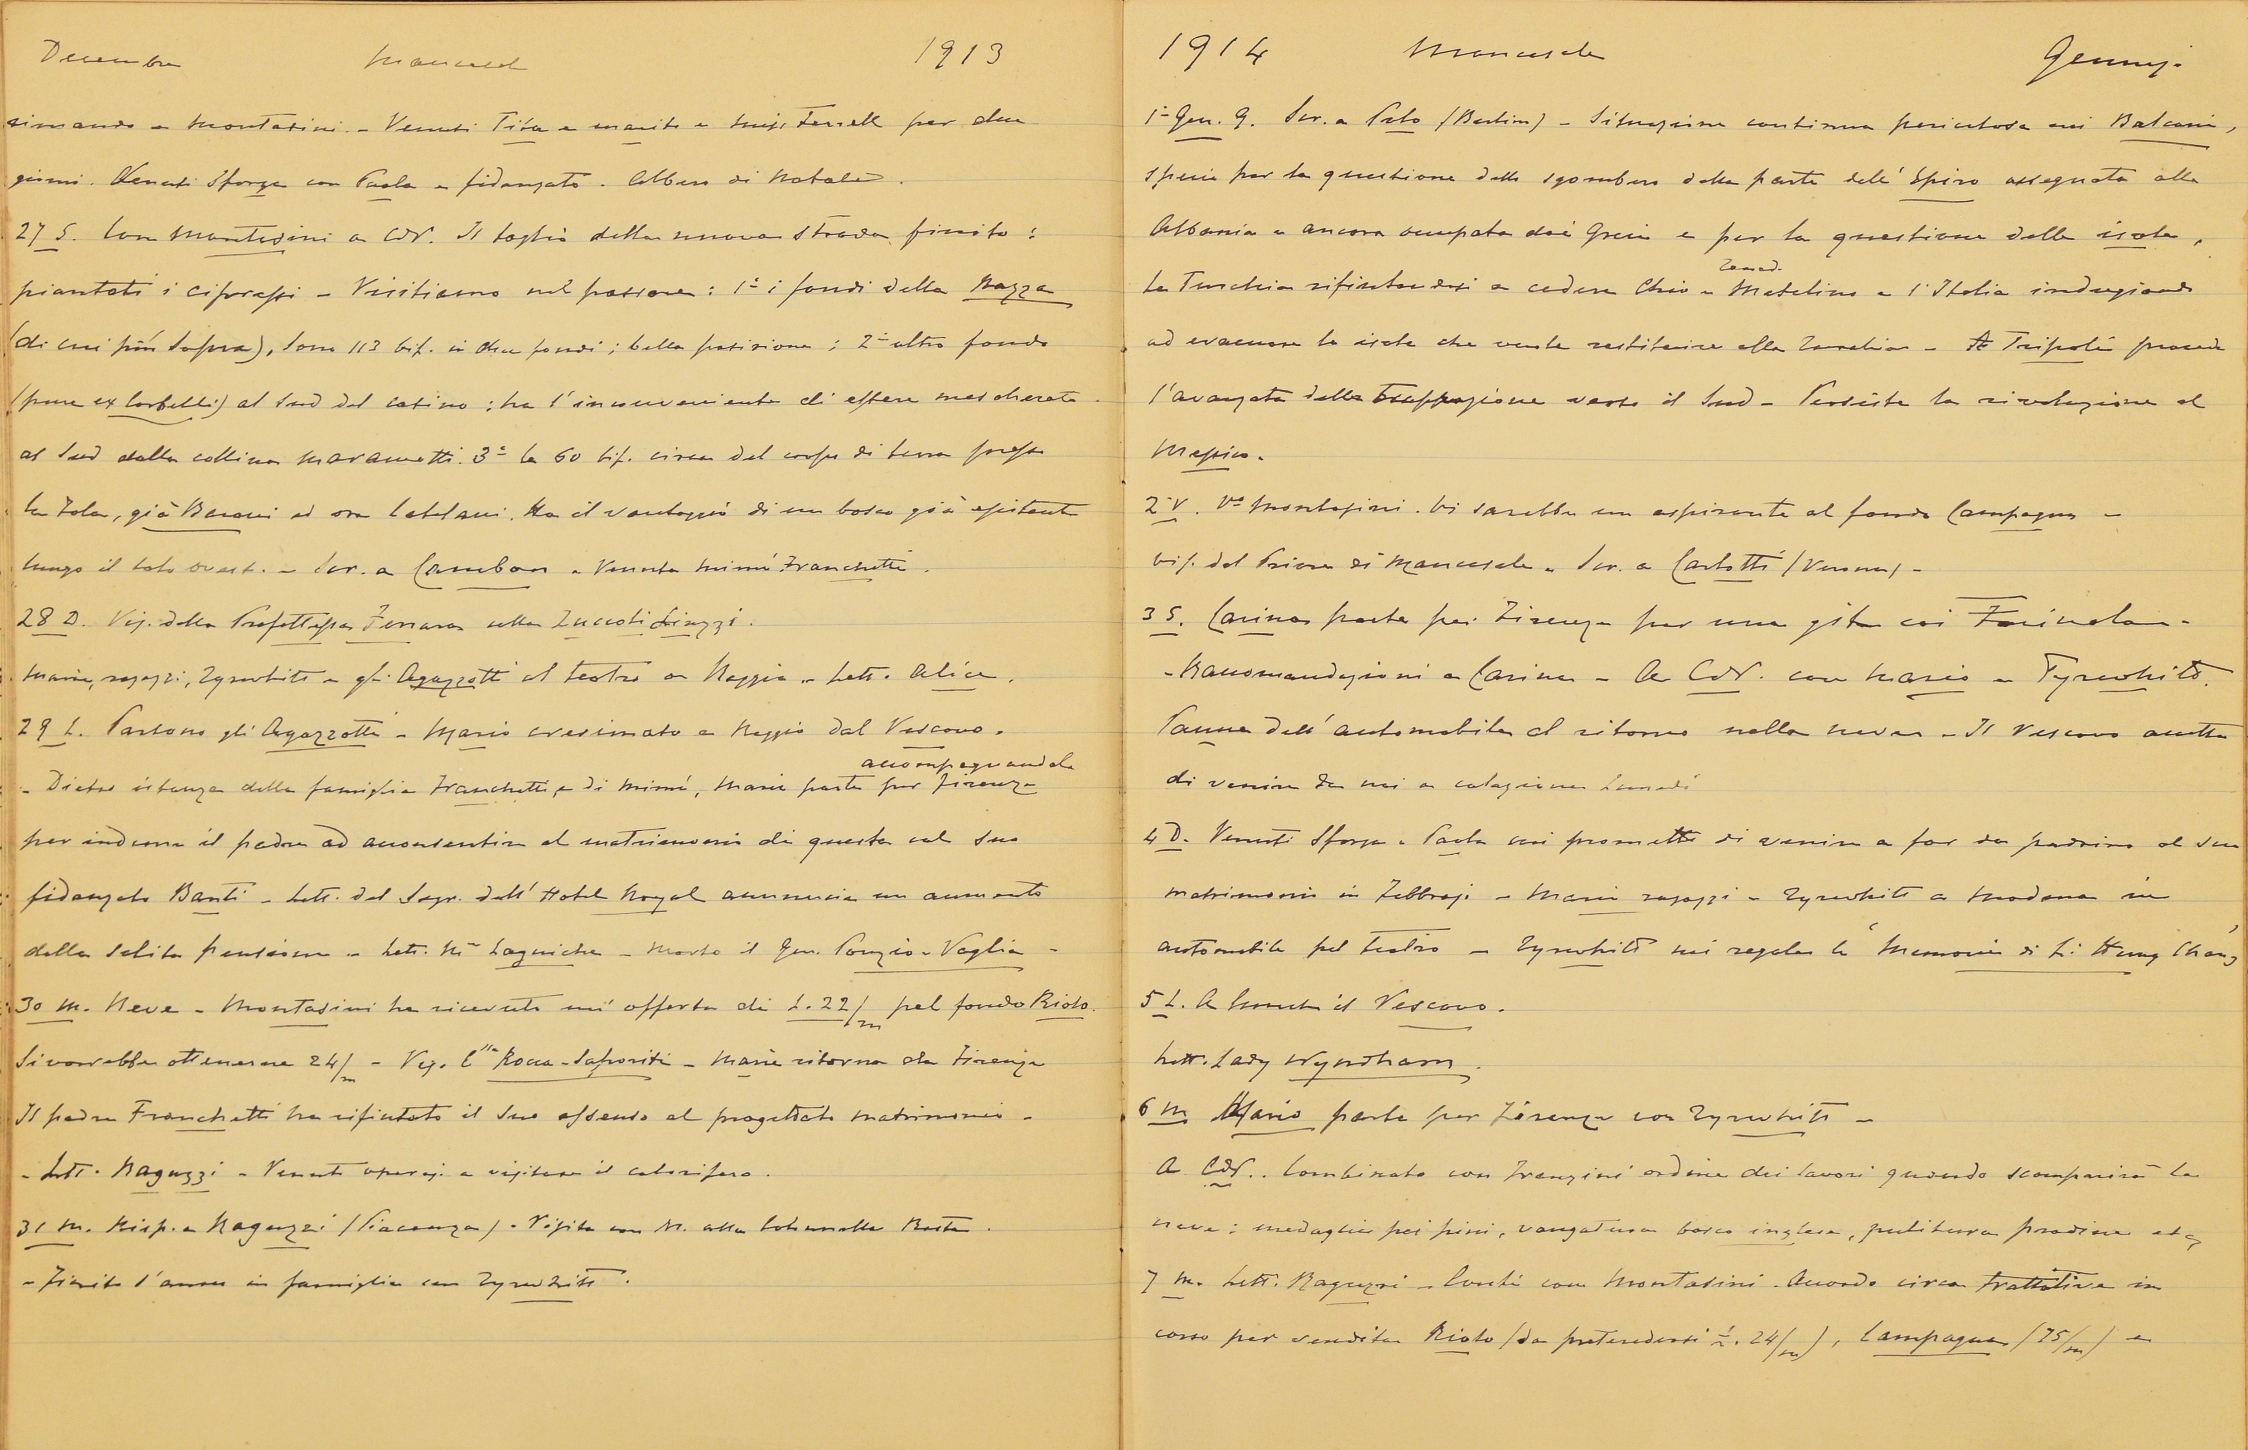 Decembre Mancasale 1913
rimando a Montasini. - Venuti Titia e marito e Miss Ferrell per due
giorni. Venuti Sforza con Paola e fidanzato. Albero di Natale.
27 S. Con Montasini a CdV. Il taglio della nuova strada finito:
piantati i cipressi - Visitiamo nel passare: 1° i fondi della Razza
(di cui più sopra), sono 113 bif. in due fondi; bella posizione; 2° altro fondo
(pure ex Corbelli) al Sud del casino: ha l'inconveniente di essere mascherato
al Sud dalla collina Maramotti. 3° le 60 bif. circa del corpo di terra presso
la Fola, già Baroni ed ora Catelani. Ha il vantaggio di un bosco già esistente
lungo il lato ovest. - Scr. a Cambon - Venuta Mimì Franchetti.
28 D. Vis. della Prefettessa Ferrara colla Zuccoli Liuzzi.
Marie, ragazzi, Tyrwhitt e gli Agazzotti al teatro a Reggio - Lett. Alice.
29 L. Partono gli Agazzotti - Mario cresimato a Reggio dal Vescovo.
accompagnandola
- Dietro istanza della famiglia Franchetti e di Mimì, Marie parte per Firenze
per indurre il padre ad acconsentire al matrimonio di questa col suo
fidanzato Banti - Lett. del Segr. dell'Hotel Royal annuncia un aumento
della solita pensione - Lett. Me Laguiche - Morto il Gen. Ponzio-Vaglia -
30 M. Neve - Montasini ha ricevuto un'offerta di L. 22/m pel fondo Riolo.
Si vorrebbe ottenerne 24/m - Vis. C.lla Rocca-Saporiti - Marie ritorna da Firenze
Il padre Franchetti ha rifiutato il suo assenso al progettato matrimonio -
- Lett. Raguzzi - Venuti operaj a visitare il calorifero.
31 M. Risp. a Raguzzi (Piacenza) - Visita con M. alla Colunella Rosta.
- Finito l'anno in famiglia con Tyrwhitt.
1914 Mancasale Gennaj.
1° Gen. G. Scr. a Polo (Berlino) - Situazione continua pericolosa nei Balcani,
specie per la questione dello sgombero della parte dell'Epiro assegnata alla
Albania e ancora occupata dai Greci e per la questione delle isole,
la Turchia rifiutandosi a cedere Chio e Metelino e l'Italia indugiando
ad evacuare le isole che vuole restituire alla Turchia - A Tripoli procede
l'avanzata della truppa verso il Sud - Persiste la rivoluzione al
Messico.
2 V. Vo Montasini. Vi sarebbe un aspirante al fondo Campagna -
bif. del Priore di Mancasale - Scr. a Carlotti (Verona) -
3 S. Carina parte per Firenze per una gita coi Farinola -
- Raccomandazioni a Carina - A CdV. con Mario e Tyrwhitt.
Panne dell'automobile al ritorno nella neve - Il Vescovo accetta
di venire da noi a colazione Lunedì
4 D. Venuti Sforza e Paola cui prometto di venire a far da padrino al suo
matrimonio in Febbrajo - Marie ragazzi - Tyrwhitt a Modena in
automobile pel teatro - Tyrwhitt mi regala le Memorie di Li Hung Chang
5 L. A lunch il Vescovo.
Lett. Lady Wyndham.
6 M. Mario parte per Firenze con Tyrwhitt -
A CdV.. Combinato con Franzini ordine dei lavori quando scomparirà la
neve: medaglie pei pini, vangatura bosco inglese, pulitura prodine etc
7 M. Lett. Raguzzi - Conti con Montasini. Accordo circa trattative in
corso per vendita Riolo (da pretendersi L. 24/m), Campagna (75/m) e